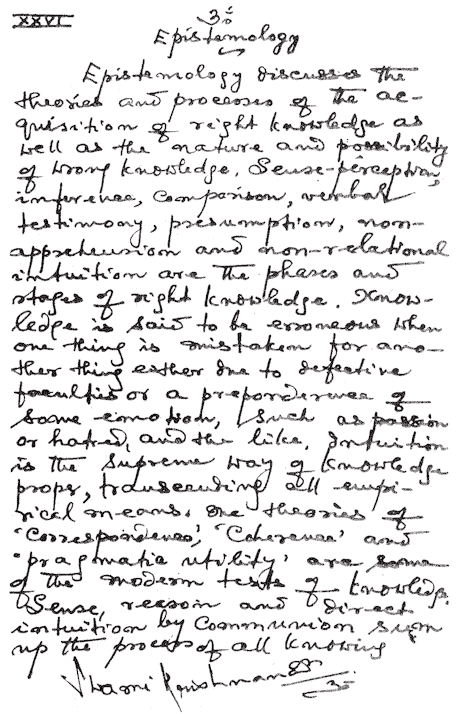 XXVI
Epistemology
Epistemology discusses the
theories and processes of the ac-
quisition of right knowledge as
well as the nature and possibility
of wrong knowledge. Sense-perception,
inference, comparison, verbal
testimony, presumption, non-
apprehension and non-relational
intuition are the phases and
stages of right knowledge. Know-
ledge is said to be erroneous when
one thing is mistaken for ano-
ther thing either due to defective
faculties or a preponderence of
some emotion, such as passion
or hatred, and the like. Intuition
is the supreme way of knowledge
proper, transcending all empi-
rical means. The theories of
'Correspondence', 'Coherence' and
'pragmatic utility' are some
of the modern tests of knowledge.
Sense, reason and direct
intuition by communion sum
up the process of all knowing
Swami Krishnananda